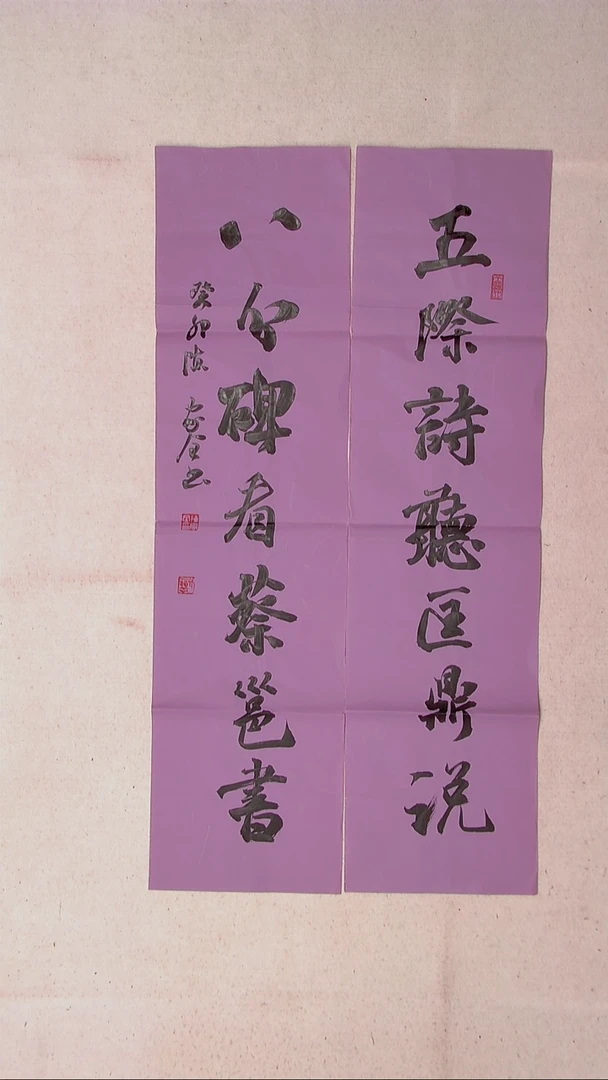 五際詩聽匡鼎说
八分碑看蔡邕書
癸卯陈